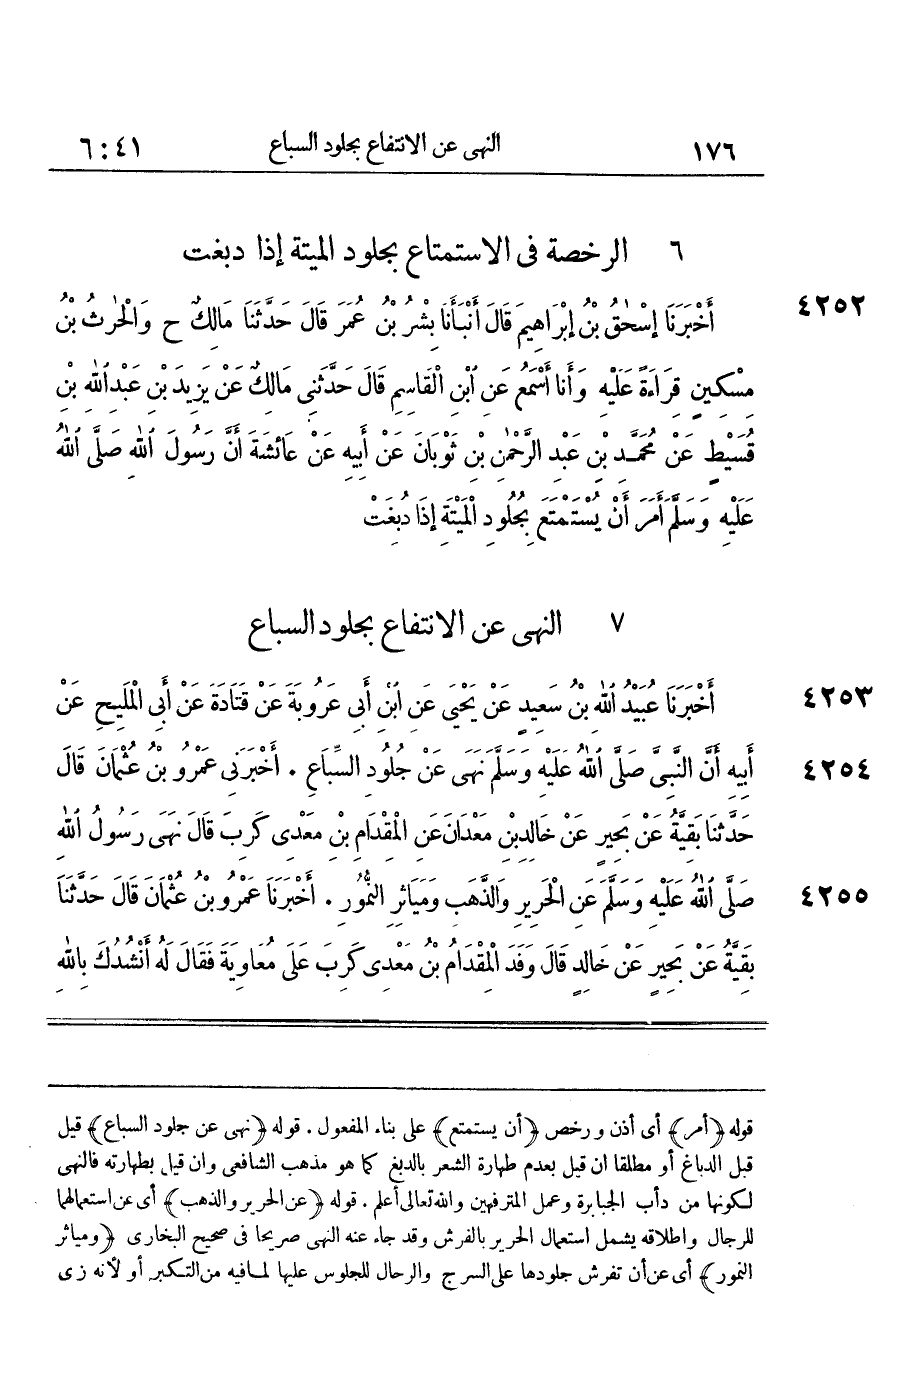 ١٧٦ النهى عن الانتفاع بجلود السباع ٤١ : ٦
٦ الرخصة فى الاستمتاع بجلود الميتة إذا دبغت
٤٢٥٢ أَخْبَرَنَا إِسْحٰقُ بْنُ إِبْرَاهِيمَ قَالَ أَنْبَأَنَا بِشْرُ بْنُ عُمَرَ قَالَ حَدَّثَنَا مَالِكٌ ح وَالْحٰرِثُ بْنُ
مِسْكِينٍ قِرَاءَةً عَلَيْهِ وَأَنَا أَسْمَعُ عَنِ ابْنِ الْقَاسِمِ قَالَ حَدَّثَنِى مَالِكٌ عَنْ يَزِيدَ بْنِ عَبْدِ اللّٰهِ بْنِ
قُسَيْطٍ عَنْ مُحَمَّدِ بْنِ عَبْدِ الرَّحْمٰنِ بْنِ ثَوْبَانَ عَنْ أَبِيهِ عَنْ عَائِشَةَ أَنَّ رَسُولَ اللّٰهِ صَلَّى اللّٰهُ
عَلَيْهِ وَسَلَّمَ أَمَرَ أَنْ يُسْتَمْتَعَ بِجُلُودِ الْمَيْتَةِ إِذَا دُبِغَتْ
٧ النهى عن الانتفاع بجلود السباع
٤٢٥٣ أَخْبَرَنَا عُبَيْدُ اللّٰهِ بْنُ سَعِيدٍ عَنْ يَحْيَى عَنِ ابْنِ أَبِى عَرُوبَةَ عَنْ قَتَادَةَ عَنْ أَبِى الْمَلِيحِ عَنْ
٤٢٥٤ أَبِيهِ أَنَّ النَّبِىَّ صَلَّى اللّٰهُ عَلَيْهِ وَسَلَّمَ نَهَى عَنْ جُلُودِ السِّبَاعِ . أَخْبَرَنِى عَمْرُو بْنُ عُثْمَانَ قَالَ
حَدَّثَنَا بَقِيَّةُ عَنْ بَحِيرٍ عَنْ خَالِدِ بْنِ مَعْدَانَ عَنِ الْمِقْدَامِ بْنِ مَعْدِى كَرِبَ قَالَ نَهَى رَسُولُ اللّٰهِ
٤٢٥٥ صَلَّى اللّٰهُ عَلَيْهِ وَسَلَّمَ عَنِ الْحَرِيرِ وَالذَّهَبِ وَمَيَاثِرِ النُّمُورِ . أَخْبَرَنَا عَمْرُو بْنُ عُثْمَانَ قَالَ حَدَّثَنَا
بَقِيَّةُ عَنْ بَحِيرٍ عَنْ خَالِدٍ قَالَ وَفَدَ الْمِقْدَامُ بْنُ مَعْدِى كَرِبَ عَلَى مُعَاوِيَةَ فَقَالَ لَهُ أَنْشُدُكَ بِاللّٰهِ
قوله ﴿أمر﴾ أى أذن ورخص ﴿أن يستمتع﴾ على بناء المفعول . قوله ﴿نهى عن جلود السباع﴾ قيل
قبل الدباغ أو مطلقا ان قيل بعدم طهارة الشعر بالدبغ كما هو مذهب الشافعى وان قيل بطهارته فالنهى
لكونها من دأب الجبابرة وعمل المترفهين والله تعالى أعلم . قوله ﴿عن الحرير والذهب﴾ أى عن استعمالهما
للرجال واطلاقه يشمل استعمال الحرير بالفرش وقد جاء عنه النهى صريحا فى صحيح البخارى ﴿ومياثر
النمور﴾ أى عن أن تفرش جلودها على السرج والرحال للجلوس عليها لما فيه من التكبر أو لأنه زى